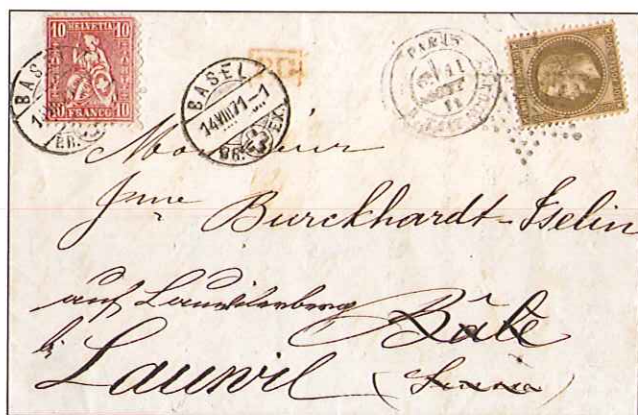 10 HELVETIA 10
10 FRANCO 10
BASEL
BASEL
14 VIII 71 - 1
BR. EXP.
PD
PARIS
Monsieur
Burckhardt-Iselin
auf Lauwilerberg Bâle
bei
Lauwil (Suisse)